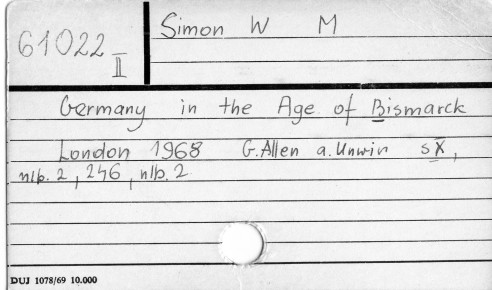 61022
II
Simon W M
Germany in the Age of Bismarck
London 1968 G. Allen a. Unwin s X,
nlb. 2, 246, nlb. 2
DUJ 1078/69 10.000